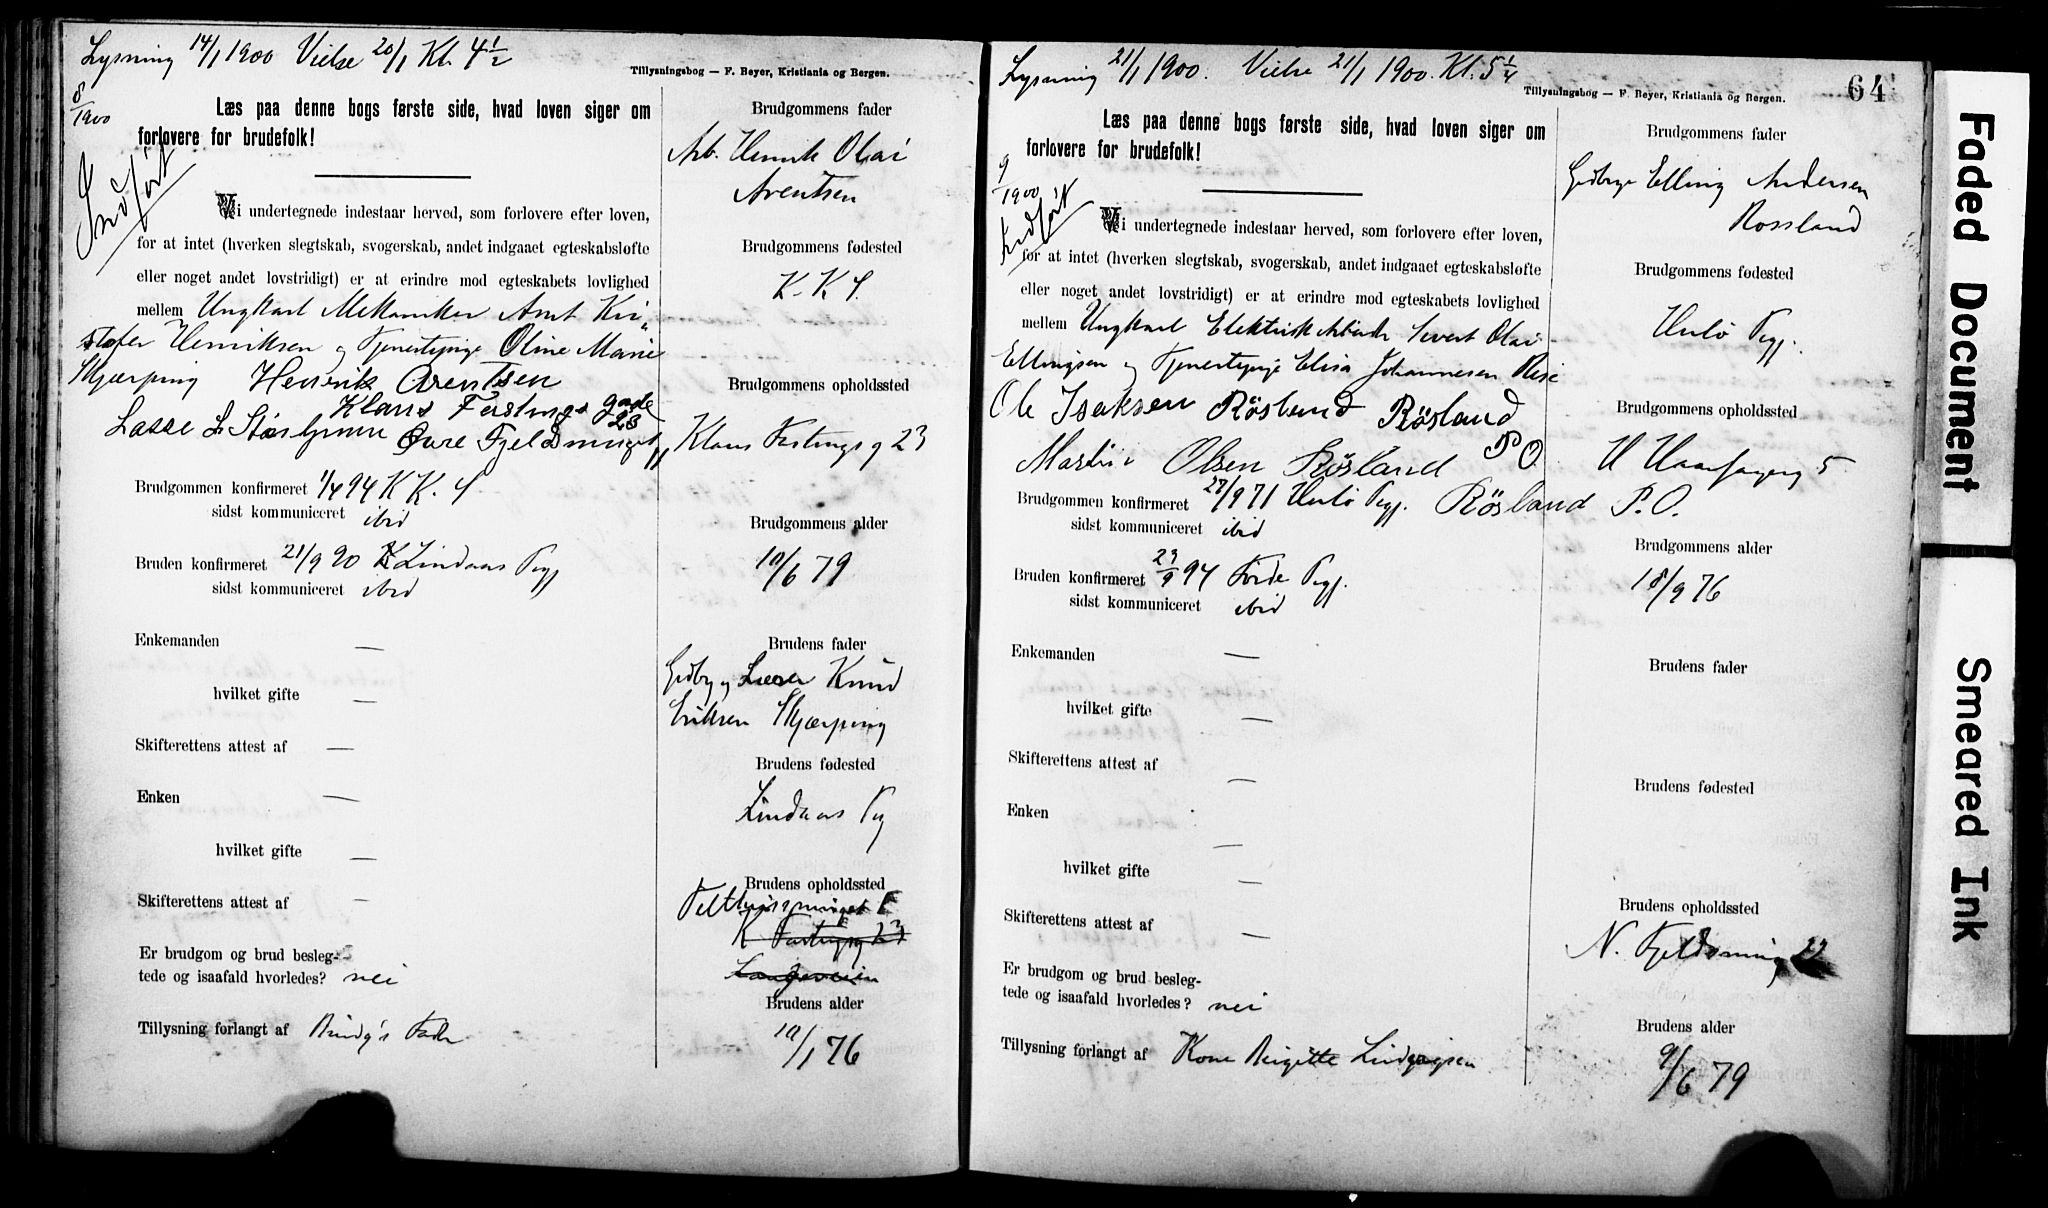 Lysning 14/1 1900 Vielse 20/1 Kl. 4 1/2
Tillysningsbog — F. Beyer, Kristiania og Bergen.
8/1900
Læs paa denne bogs første side, hvad loven siger om
forlovere for brudefolk!
Indført
Vi undertegnede indestaar herved, som forlovere efter loven,
for at intet (hverken slegtskab, svogerskab, andet indgaaet egteskabsløfte
eller noget andet lovstridigt) er at erindre mod egteskabets lovlighed
mellem Ungkarl Mekaniker Arnt Kri-
stofer Henriksen og Tjenestepige Oline Marie
Skjærping Henrik Arentsen
Klaus Fastings gade 23
Lasse L Øvre Fjeldsmuget
Brudgommen konfirmeret 1/4 94 K K. S
sidst kommuniceret ibid
Bruden konfirmeret 21/9 90 Lindaas Pgj
sidst kommuniceret ibid
Enkemanden —
hvilket gifte —
Skifterettens attest af —
Enken —
hvilket gifte —
Skifterettens attest af —
Er brudgom og brud besleg-
tede og isaafald hvorledes? nei
Tillysning forlangt af Brudg's Fader
Brudgommens fader
Arb. Henrik Olai
Arentsen
Brudgommens fødested
K. K S.
Brudgommens opholdssted
Klaus Fastings g 23
Brudgommens alder
10/6 79
Brudens fader
Gdbr og Knud
Eriksen Skjærping
Brudens fødested
Lindaas Pg
Brudens opholdssted
K Fastings g 23
Langeveien
Brudens alder
10/1 76
Lysning 21/1 1900. Vielse 21/1 1900. Kl. 5 1/4
Tillysningsbog — F. Beyer, Kristiania og Bergen.
64
Læs paa denne bogs første side, hvad loven siger om
forlovere for brudefolk!
9/1900
Indført
Vi undertegnede indestaar herved, som forlovere efter loven,
for at intet (hverken slegtskab, svogerskab, andet indgaaet egteskabsløfte
eller noget andet lovstridigt) er at erindre mod egteskabets lovlighed
mellem Ungkarl Elektrisk Arbeider Sivert Olai
Ellingsen og Tjenestepige Elisa Johannesen
Ole Isaksen Røsland Røsland
P O.
Martin Olsen Røsland
Brudgommen konfirmeret 27/9 71 Herlø Pgj. Røsland P.O.
sidst kommuniceret ibid
Bruden konfirmeret 23/9 94 Førde Pgj.
sidst kommuniceret ibid
Enkemanden —
hvilket gifte —
Skifterettens attest af —
Enken —
hvilket gifte —
Skifterettens attest af —
Er brudgom og brud besleg-
tede og isaafald hvorledes? nei
Tillysning forlangt af Kone Birgitte
Brudgommens fader
Gdbr Elling Andersen
Rossland
Brudgommens fødested
Herlø Pgj.
Brudgommens opholdssted
5
Brudgommens alder
18/9 76
Brudens fader
Brudens fødested
Brudens opholdssted
N. Fjeldsmug 22
Brudens alder
9/6 79
Faded Document
Smeared Ink